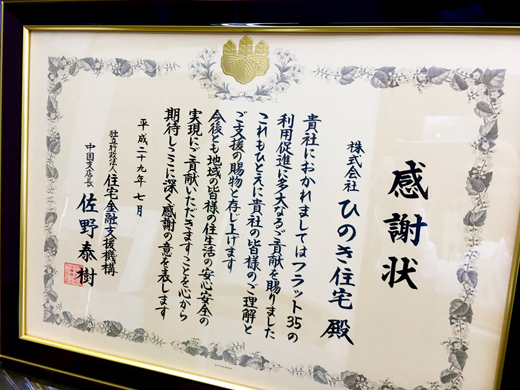 感謝状
株式会社 ひのき住宅 殿
貴社におかれましてはフラット35の
利用促進に多大なるご貢献を賜りました
これもひとえに貴社の皆様のご理解と
ご支援の賜物と存じ上げます
今後とも地域の皆様の住生活の安心安全の
実現にご貢献いただきますことを心から
期待しここに深く感謝の意を表します
平成二十九年七月
独立行政法人住宅金融支援機構
中国支店長 佐野泰樹